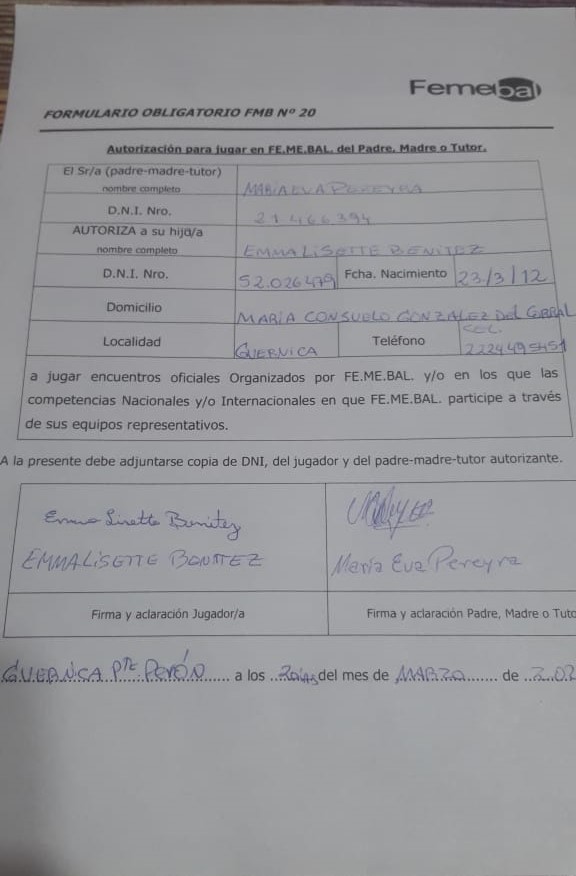 Femebal
FORMULARIO OBLIGATORIO FMB Nº 20
Autorización para jugar en FE.ME.BAL. del Padre, Madre o Tutor.
El Sr/a (padre-madre-tutor)
nombre completo
MARIA EVA PEREYRA
D.N.I. Nro.
21.466.394
AUTORIZA a su hijo/a
nombre completo
EMMA LISETTE BENITEZ
D.N.I. Nro.
52.026479
Fcha. Nacimiento
23/3/12
Domicilio
MARIA CONSUELO GONZALEZ DEL
Localidad
GUERNICA
Teléfono
CEL.
a jugar encuentros oficiales Organizados por FE.ME.BAL. y/o en los que las
competencias Nacionales y/o Internacionales en que FE.ME.BAL. participe a través
de sus equipos representativos.
A la presente debe adjuntarse copia de DNI, del jugador y del padre-madre-tutor autorizante.
Emma Lisette Benitez
EMMA LISETTE BENITEZ
María Eva Pereyra
Firma y aclaración Jugador/a
Firma y aclaración Padre, Madre o Tuto
GUERNICA PTE. PERÓN a los del mes de MARZO de 202